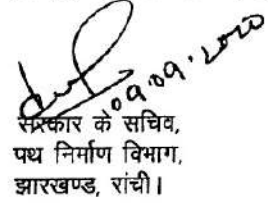 09.09.2020
सरकार के सचिव,
पथ निर्माण विभाग,
झारखण्ड, रांची।